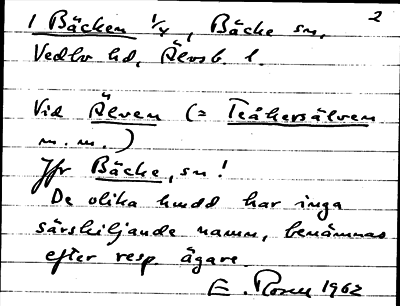 2
1 Bäcken 1/4, Bäcke sn,
Vedbo hd, Älvsb. l.
Vid Älven (= Teåkersälven
m. m.)
Jfr Bäcke, sn!
De olika hmdd har inga
särskiljande namn, benämnas
efter resp. ägare.
E. Rosell 1962